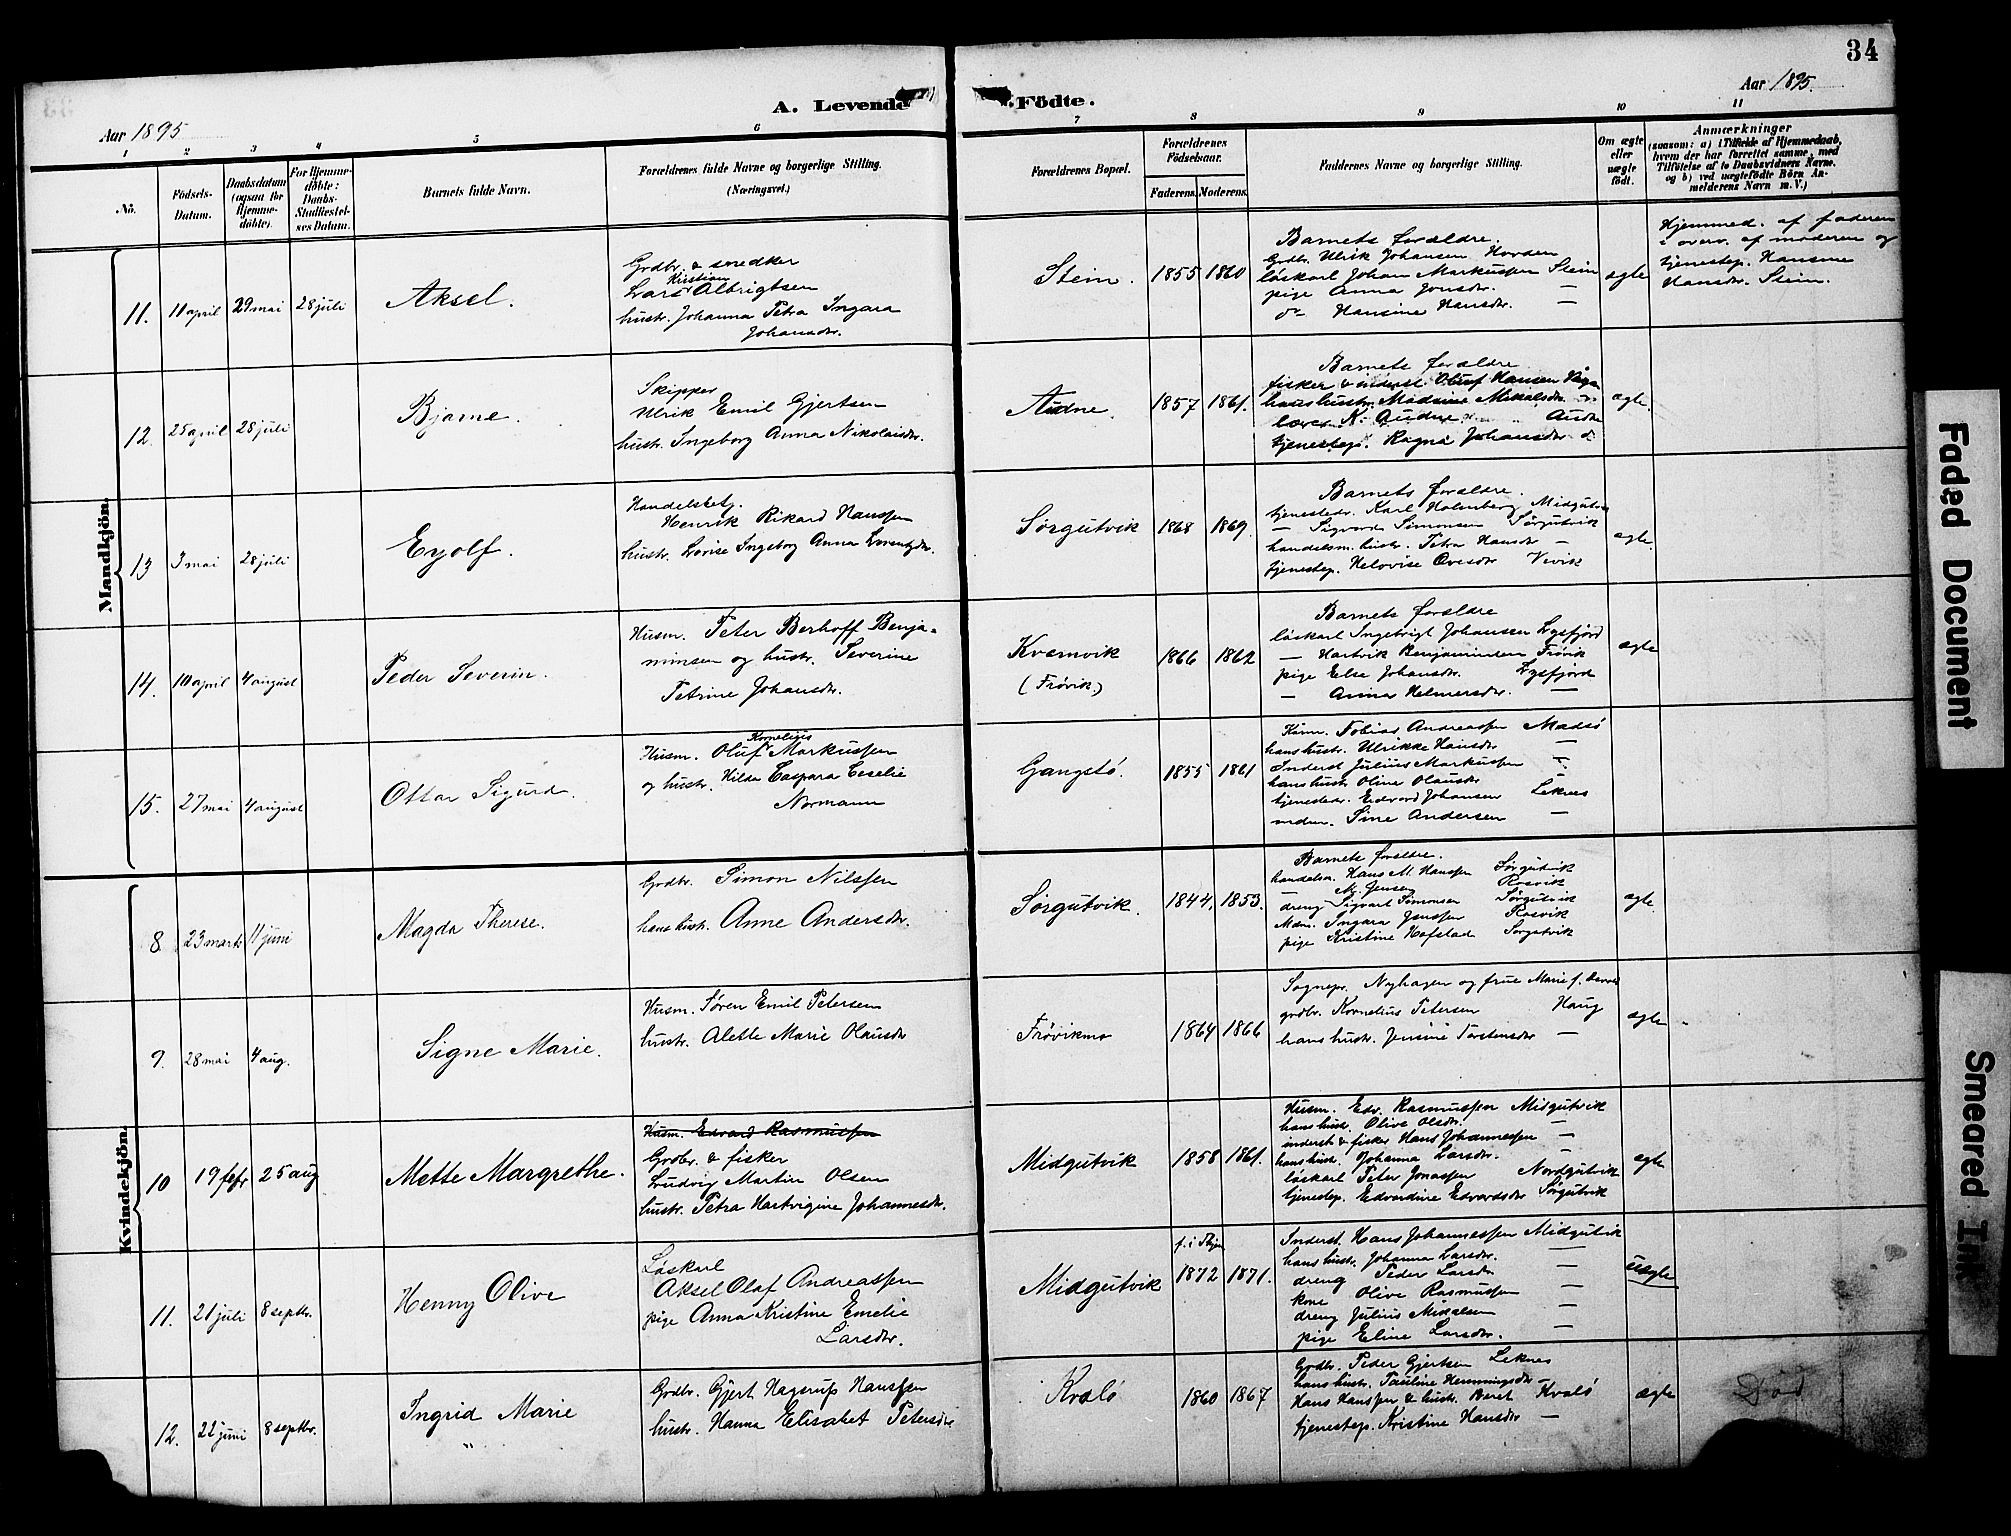 34
A. Levende Födte.
Aar 1895
Aar 1895.
1 2 3 4 5 6 7 8 9 10 11
No.
Födsels-
Datum.
Daabsdatum
(ogsaa for
Hjemme-
döbte).
For Hjemme-
döbte:
Daabs-
Stadfæstel-
ses Datum.
Barnets fulde Navn.
Forældrenes fulde Navne og borgerlige Stilling.
(Næringsvei.)
Forældrenes Bopæl.
Forældrenes
Födselsaar.
Faderens. Moderens.
Faddernes Navne og borgerlige Stilling.
Om ægte
eller
uægte
födt.
Anmærkninger
(saasom: a) i Tilfælde af Hjemmedaab,
hvem der har forrettet samme, med
Tilföielse af to Daabsvidners Navne.
og b) ved uægtefödte Börn An-
melderens Navn m. V.)
Mandkjön.
11. 11 april 29 mai 28 juli
Aksel.
Grdbr. & snedker
Kristian
Lars Albrigtsen
hustr. Johanna Petra Ingara
Johansdr.
Stein. 1855 1860
Barnets forældre.
Grdbr. Ulrik Johansen Hovden
löskarl Johan Markussen Stein
pige Anna Jonsdr. —
do Hansine Hansdr. —
ægte
Hjemmed. af faderen
i overv. af moderen og
tjenestep. Hansine
Hansdr. Stein.
12. 25 april 28 juli
Bjarne.
Skipper
Ulrik Emil Gjertsen
hustr. Ingeborg Anna Nikolaisdr.
Audne. 1857 1861.
Barnets forældre
fisker & inderst Oluf Hansen
hans hustr. Mikalsdr
lærer K. Audne. Audne
tjenestep. Ragna Johansdr do
ægte.
13 3 mai 28 juli
Eyolf.
Handelsbetj.
Henrik Rikard Hanssen
hustr. Lovise Ingeborg Anna Lorentzdr.
Sørgutvik 1868 1869.
Barnets forældre.
tjenestedr. Karl Holmberg Midgutvik
— Sigvard Simonsen Sørgutvik
handelsm. hustr. Petra Hansdr —
tjenestep. Helovise Ovesdr Vivik
ægte.
14. 10 april 4 august
Peder Severin.
Husm. Peter Berhoff Benja-
minsen og hustr. Severine
Petrine Johansdr.
Kvernvik
(Frøvik.)
1866 1862
Barnets forældre
löskarl Ingebrigt Johansen Lysfjord
— Hartvik Benjaminsen Frøvik
pige Else Johansdr. Lysfjord
— Anna Helmersdr. —
ægte
15. 27 mai 4 august
Ottar Sigurd.
Kornelius
Husm. Oluf Markussen
og hustr. Hilda Caspara Ceselie
Normann
Gangstö. 1855 1861
Husm. Tobias Andreassen Madsö
hans hustr. Ulrikke Hansdr —
Inderst Julius Markussen —
hans hustr. Oline Olausdr
tjenestedr. Edvard Johansen Leknes
mdm. Sine Andersen —
Kvindekjön.
8 23 marts 11 juni
Magda Therese.
Grdbr. Simon Nilssen
hans hustr. Anne Andersdr.
Sørgutvik. 1844. 1853.
Barnets forældre.
handelsm. Hans M. Hanssen Sørgutvik
M. Jensen Rosvik
dreng Sigvart Simonsen Sørgutvik
Mdm. Ingara Jenssen Rosvik
pige Kristine Hofstad Sørgutvik
ægte.
9. 28 mai 4 aug.
Signe Marie.
Husm. Søren Emil Petersen
hustr. Alette Marie Olausdr
Frøvikmo 1864 1866
Sognepr. Nyhagen og frue Marie f.
grdbr. Kornelius Petersen Haug
hans hustr. Jensine Torstensdr —
ægte
10 19 febr 25 aug
Mette Margrethe.
Husm. Edvard Rasmussen
Grdbr. & fisker
Ludvig Martin Olsen
hustr. Petra Hartvigine Johannesdr.
Midgutvik 1858 1861.
Husm. Edv. Rasmussen Midgutvik
hans hustr. Olive Olsdr. —
inderst & fisker Hans Johannessen —
hans hustr. Johanna Larsdr. —
löskarl Peter Jonassen Nordgutvik
tjenestep. Edvardine Edvardsdr Sørgutvik
ægte
11. 21 juli 8 septbr.
Henny Olive
Löskarl
Aksel Olaf Andreassen
pige Anna Kristine Emelie
Larsdr.
Midgutvik
1872 1871.
Inderst. Hans Johannessen Midgutvik
hans hustr. Johanna Larsdr. —
dreng Peder Larsen —
kone Olive Rasmussen —
dreng Julius Mikalsen —
pige Eline Larsdr. —
uægte
12. 22 juni 8 septbr.
Ingrid Marie
"
Grdbr. Gjert Hagerup Hanssen
hustr. Hanna Elisabet Petersdr
Kvalö 1860 1867
Grdbr. Peder Gjertsen Leknes
hans hustr. Pauline Hemmingsdr
Hans Hanssen & hustr. Beret Kvalö
tjenestep. Kristine Hansdr —
ægte
Död
Faded Document
Smeared Ink